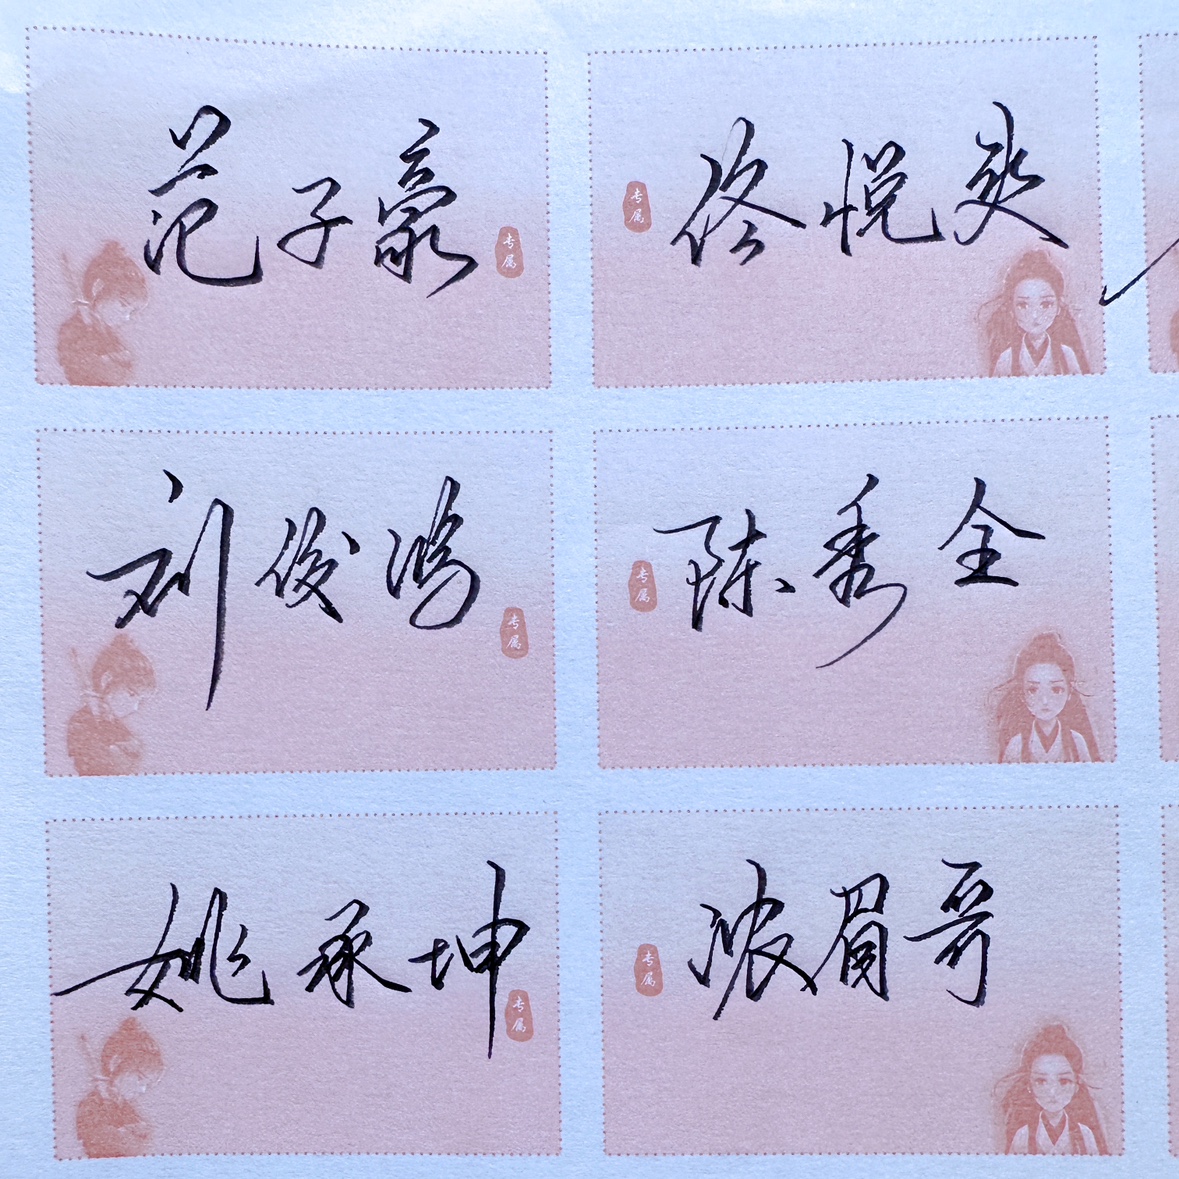 范子豪
专属
专属
佟悦爽
刘俊鸿
专属
专属
陈秀全
姚承坤
专属
专属
浓眉哥